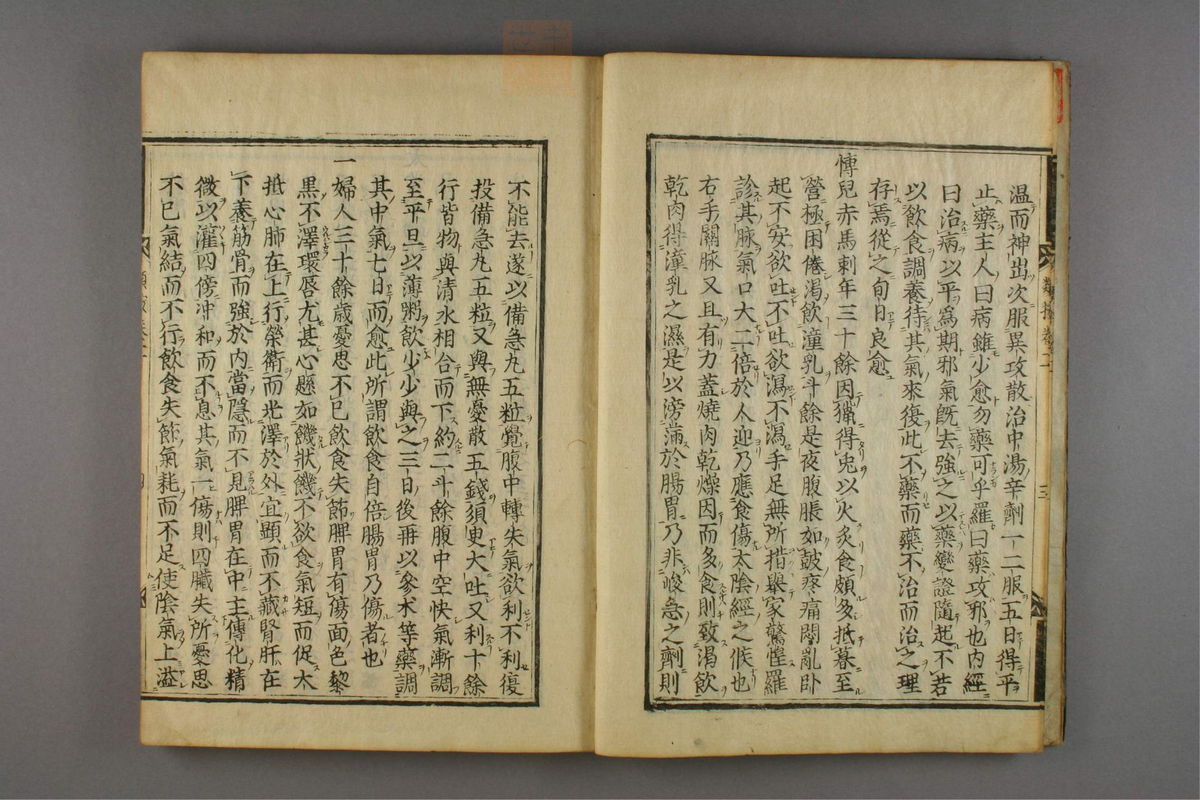 温而神出次服異攻散治中湯辛劑一二服五日得平
止藥主人曰病雖少愈勿藥可乎羅曰藥攻邪也內經
曰治病以平爲期邪氣旣去強之以藥變證隨起不若
以飲食調養待其氣來復此不藥而藥不治而治之理
存焉從之旬日良愈
愽兒赤馬剌年三十餘因獵得兎以火炙食頗多抵暮至
營極困倦渴飲潼乳斗餘是夜腹脹如鼓疼痛悶亂卧
起不安欲吐不吐欲瀉不瀉手足無所措舉家驚惶羅
診其脉氣口大二倍於人迎乃應食傷太陰經之候也
右手關脉又且有力蓋燒肉乾燥因而多食則致渴飲
乾肉得潼乳之濕是以滂滿於腸胃乃非峻急之劑則
不能去遂以備急丸五粒覺腹中轉失氣欲利不利復
投備急丸五粒又與無憂散五錢須臾大吐又利十餘
行皆物與清水相合而下約二斗餘腹中空快氣漸調
至平旦以薄粥飲少少與之三日後再以參术等藥調
其中氣七日而愈此所謂飲食自倍腸胃乃傷者也
一婦人三十餘歲憂思不已飲食失節脾胃有傷面色黎
黑不澤環唇尤甚心懸如饑狀饑不欲食氣短而促大
抵心肺在上行榮衛而光澤於外宜顯而不藏腎肝在
下養筋骨而強於內當隱而不見脾胃在中主傳化精
微以灌四傍冲和而不息其氣一傷則四臟失所憂思
不已氣結而不行飲食失節氣耗而不足使陰氣上溢